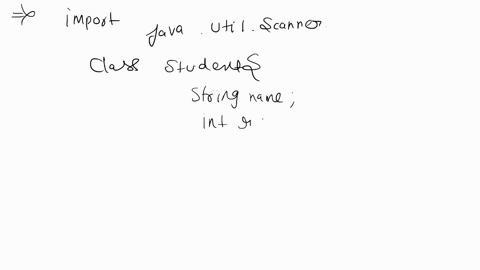 => import java . util . Scanner
Class Student{
String name ;
int r